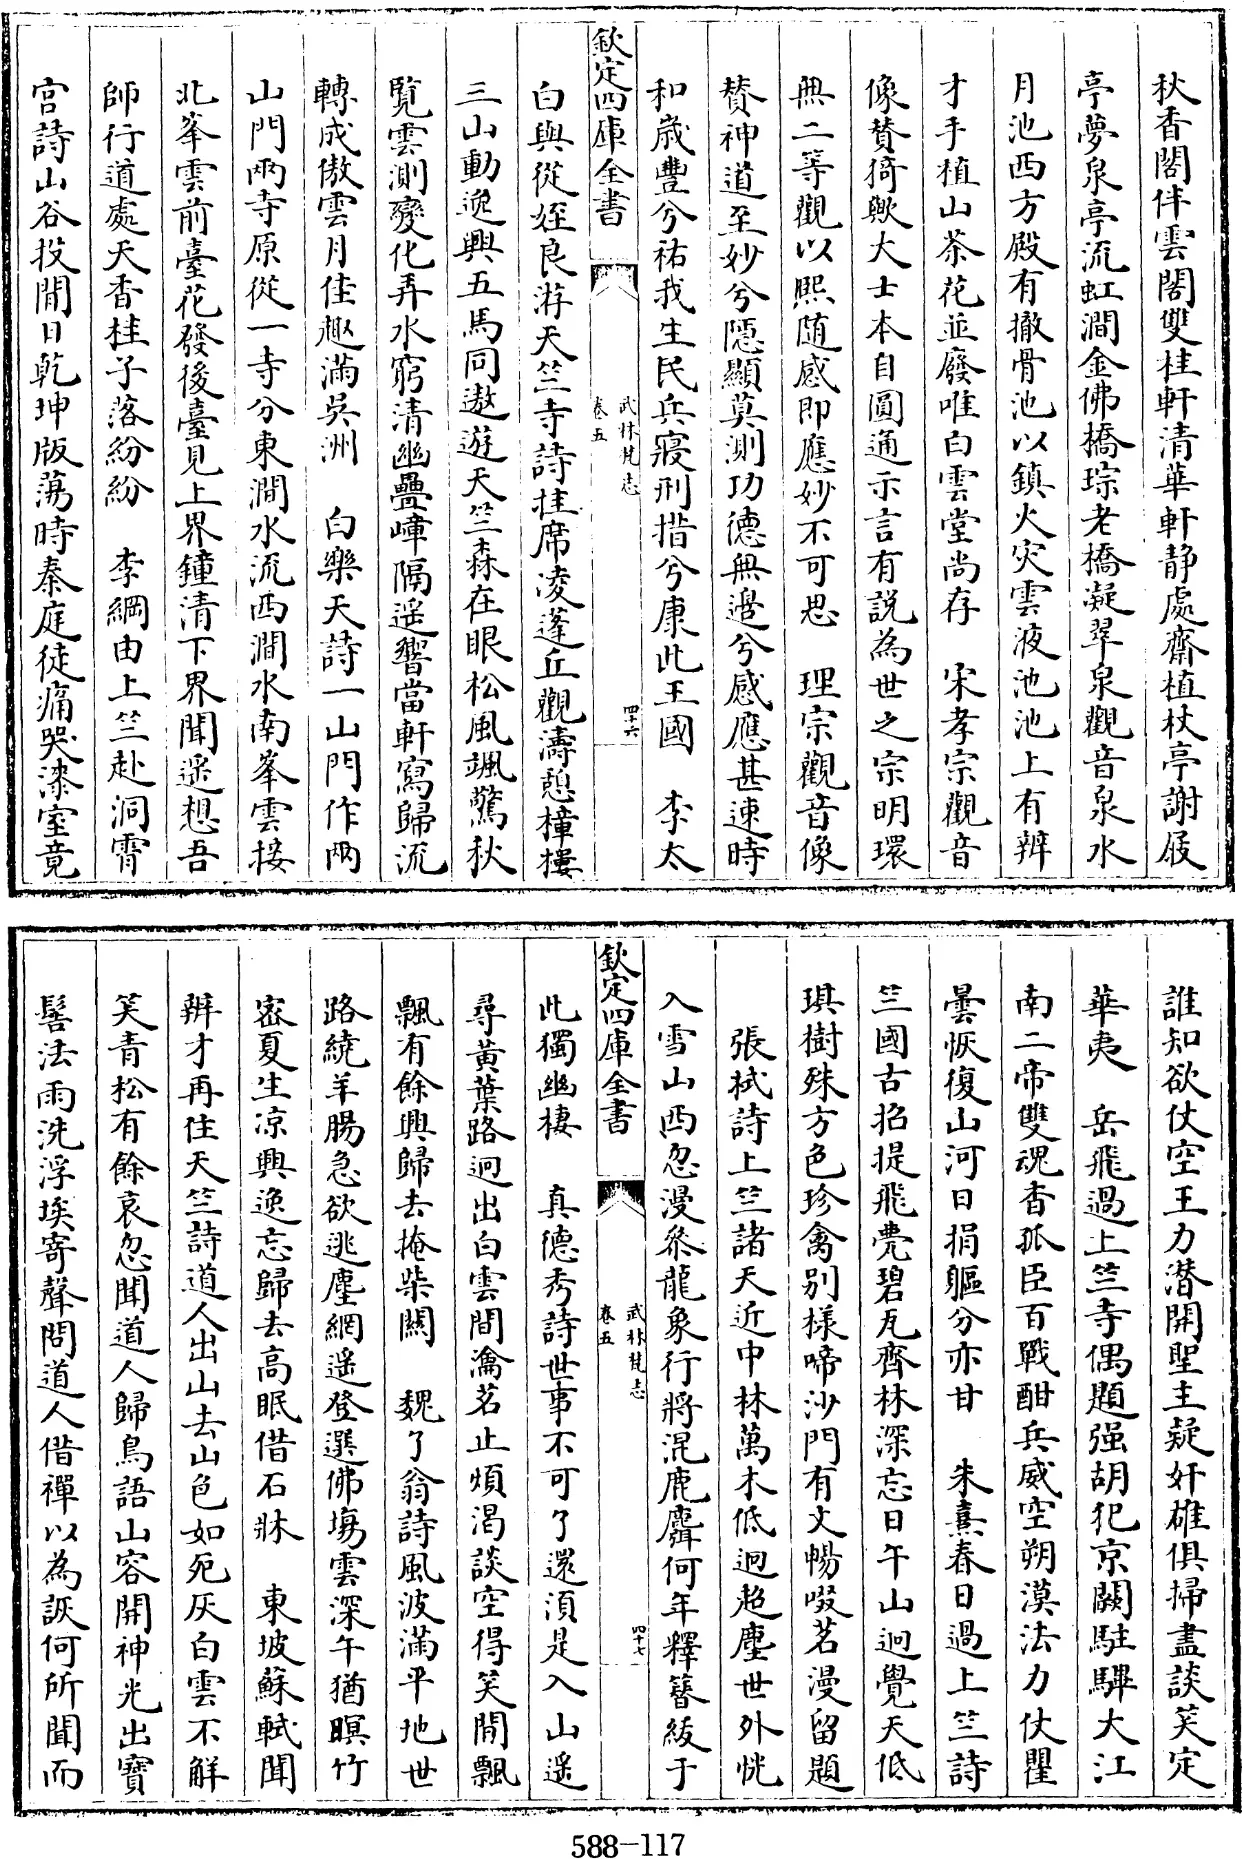 秋香閣伴雲閣雙桂軒清華軒静處齋植杖亭謝屐
亭夢泉亭流虹澗金佛橋琮老橋凝翠泉觀音泉水
月池西方殿有撤骨池以鎮火灾雲液池池上有辨
才手植山茶花並廢唯白雲堂尚存 宋孝宗觀音
像賛猗歟大士本自圓通示言有説為世之宗明環
無二等觀以熙随感即應妙不可思 理宗觀音像
賛神道至妙兮隱顯莫測功德無邊兮感應甚速時
和歲豐兮祐我生民兵寢刑措兮康此王國 李太
欽定四庫全書
武林梵志
卷五
四十六
白與從姪良游天竺寺詩挂席凌蓬丘觀濤憩樟樓
三山動逸興五馬同遨遊天竺森在眼松風颯驚秋
覽雲測變化弄水窮清幽疊嶂隔遥響當軒寫歸流
轉成傲雲月佳趣滿吳洲 白樂天詩一山門作兩
山門兩寺原從一寺分東澗水流西澗水南峯雲接
北峯雲前臺花發後臺見上界鐘清下界聞遥想吾
師行道處天香桂子落紛紛 李綱由上竺赴洞霄
宫詩山谷投閒日乾坤版蕩時秦庭徒痛哭漆室竟
誰知欲仗空王力潜開聖主疑奸雄俱掃盡談笑定
華夷 岳飛過上竺寺偶題强胡犯京闕駐驆大江
南二帝雙魂杳孤臣百戰酣兵威空朔漠法力仗瞿
曇恢復山河日捐軀分亦甘 朱熹春日過上竺詩
竺國古招提飛甍碧瓦齊林深忘日午山迥覺天低
琪樹殊方色珍禽别様啼沙門有文暢啜茗漫留題
張栻詩上竺諸天近中林萬木低迥超塵世外恍
入雪山西忽漫叅龍象行將混鹿麛何年釋簪紱于
欽定四庫全書
武林梵志
卷五
四十七
此獨幽棲 真德秀詩世事不可了還須是入山遥
尋黄葉路迥出白雲間瀹茗止煩渴談空得笑閒飄
飄有餘興歸去掩柴關 魏了翁詩風波滿平地世
路繞羊腸急欲逃塵網遥登選佛塲雲深午猶暝竹
宻夏生凉興逸忘歸去高眠借石牀 東坡蘇軾聞
辨才再住天竺詩道人出山去山色如死灰白雲不解
笑青松有餘哀忽聞道人歸鳥語山容開神光出寶
髻法雨洗浮埃寄聲問道人借禪以為詼何所聞而
588-117